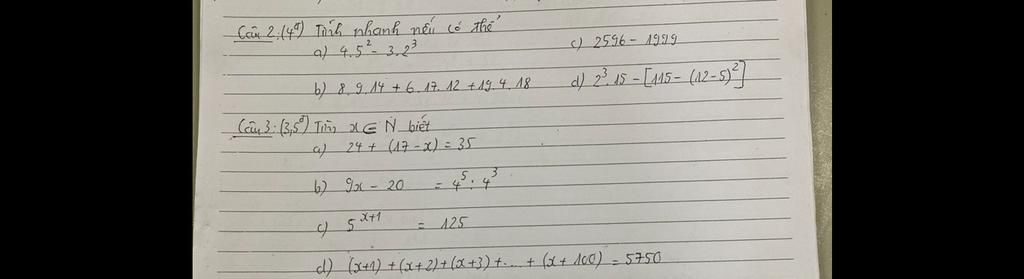 Câu 2: (4đ) Tính nhanh nếu có thể
a) 4.5² - 3.2³
c) 2596 - 1999
b) 8.9.14 + 6.17.12 + 19.4.18
d) 2³.15 - [115 - (12-5)²]
Câu 3: (3,5đ) Tìm x ∈ N biết
a) 24 + (17 - x) = 35
b) 9x - 20 = 4⁵ : 4³
c) 5ˣ⁺¹ = 125
d) (x+1) + (x+2) + (x+3) + .... + (x + 100) = 5750